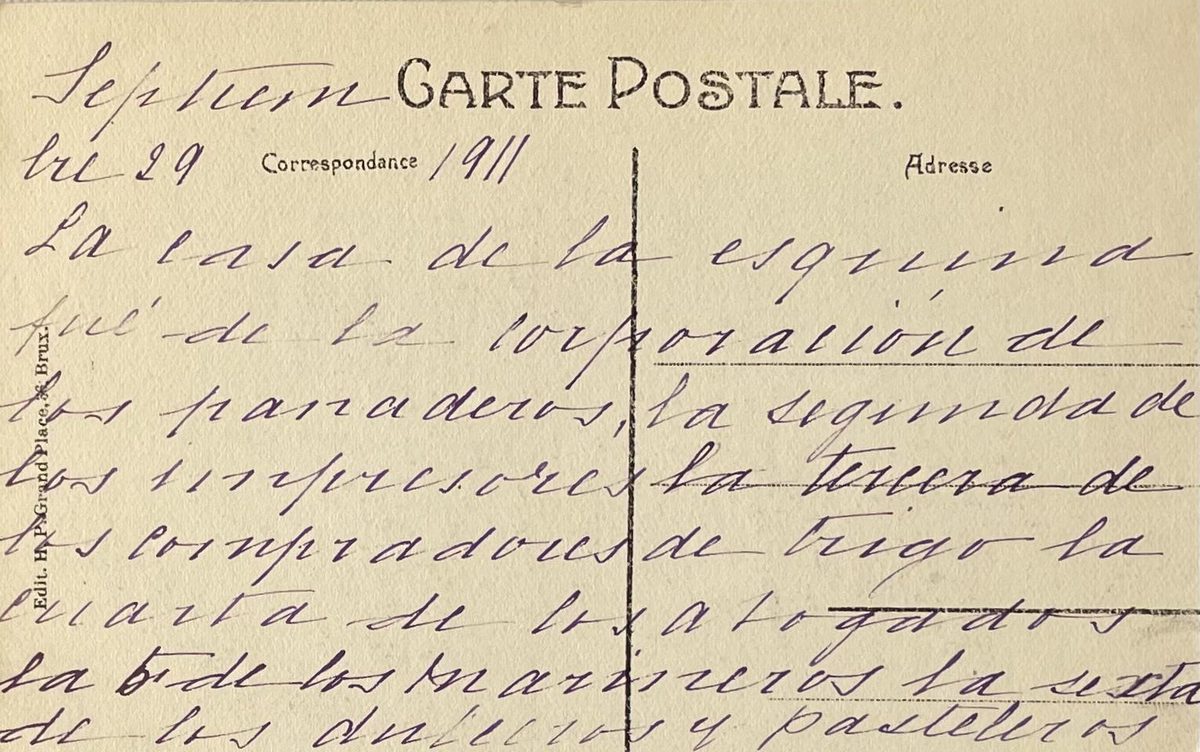 Septiem CARTE POSTALE.
bre 29 Correspondance 1911 Adresse
La casa de la esquina
fué de la corporación de
los panaderos, la segunda de
los impresores la tercera de
los compradores de trigo la
cuarta de los abogados
la 5ª de los marineros la sexta
de los dulceros y pasteleros
Edit. H. P. Grand Place, Brux.